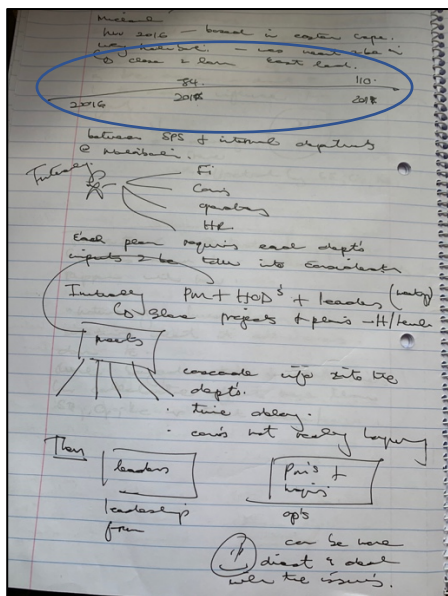 Michael
Nov 2016 – based in eastern cape.
close & learn East lond.
84. 110.
2016 2018 2018
between SPS & internal departments
@ Nalibali.
Initially. Fi
Coms
operations
HR
Each plan requires each dept's
inputs 2 be taken into consideration
Initially PM + HOD's + leaders
share projects & plans – H/
meets
cascade info into the
dept's.
· time delay.
· com's not really happening
Then leaders PM's +
leadership op's
from
can be more
direct & deal
with the issues.